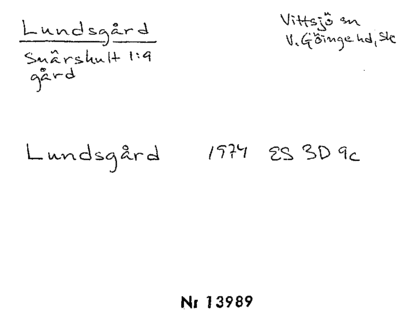 Lundsgård
Snärshult 1:9
gård
Vittsjö sn
V. Göinge hd, Sk
Lundsgård 1974 ES 3D 9c
Nr 13989